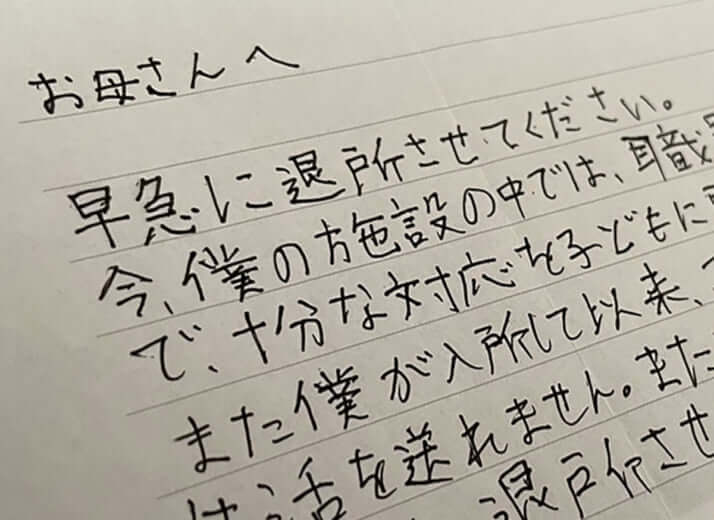 お母さんへ
早急に退所させてください。
今、僕の施設の中では、職
で、十分な対応を子どもに
また僕が入所して以来、
活を送れません。また
退所させ